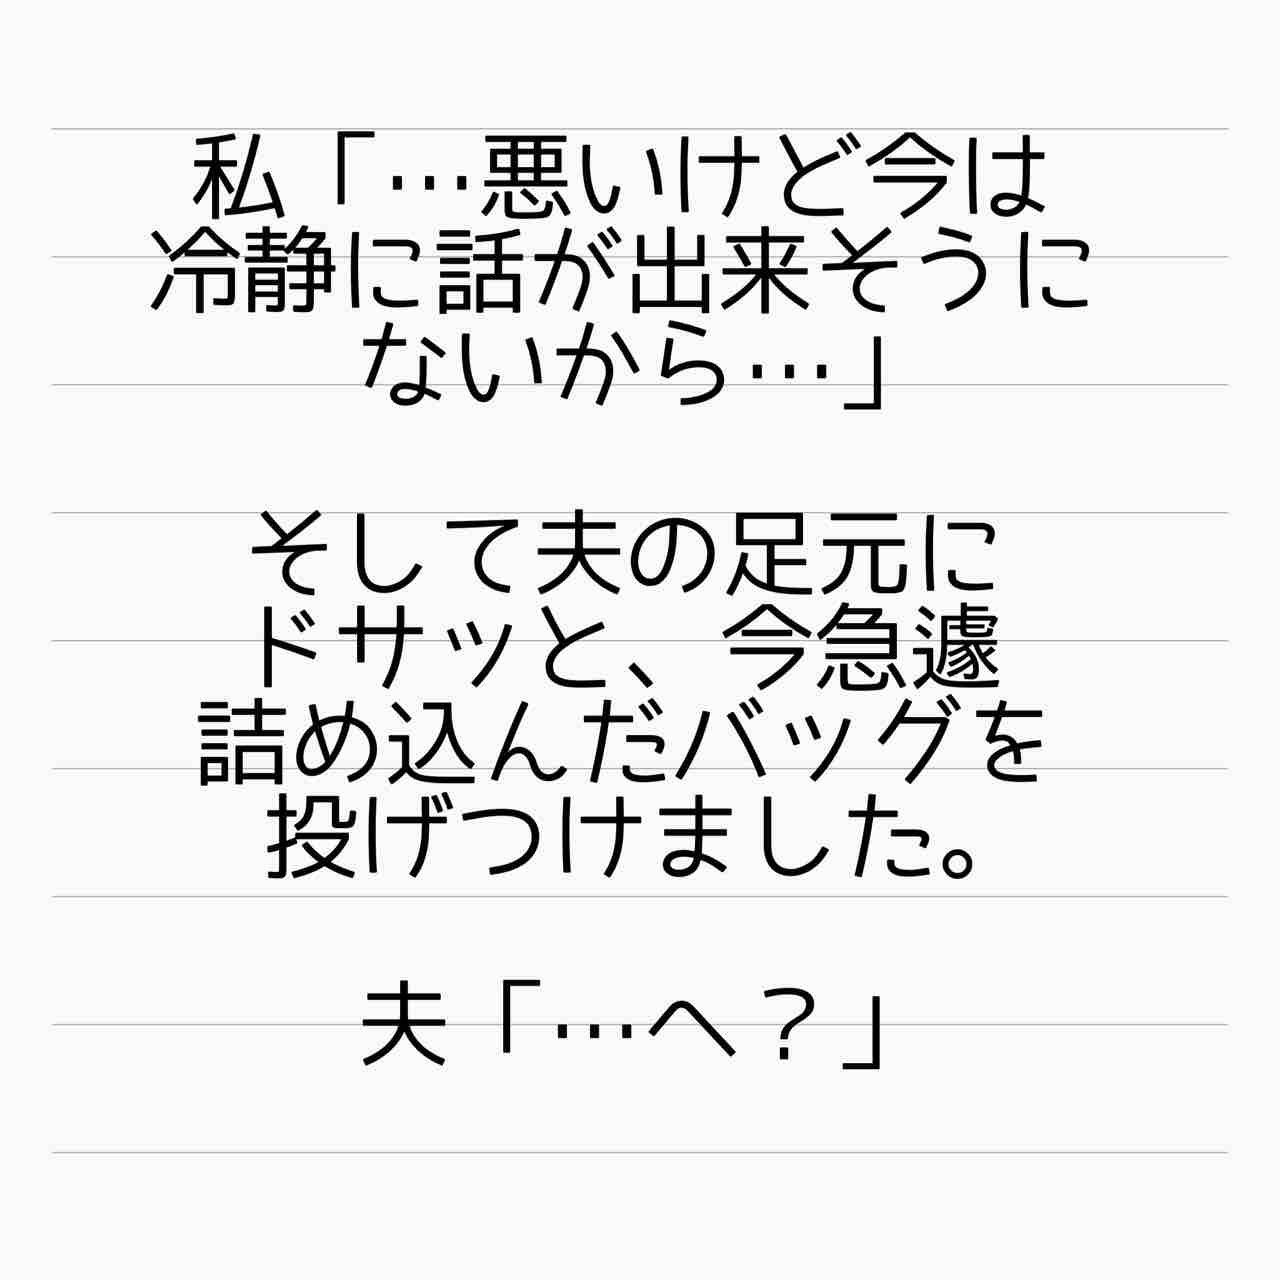 私「…悪いけど今は
冷静に話が出来そうに
ないから…」
そして夫の足元に
ドサッと、今急遽
詰め込んだバッグを
投げつけました。
夫「…へ？」